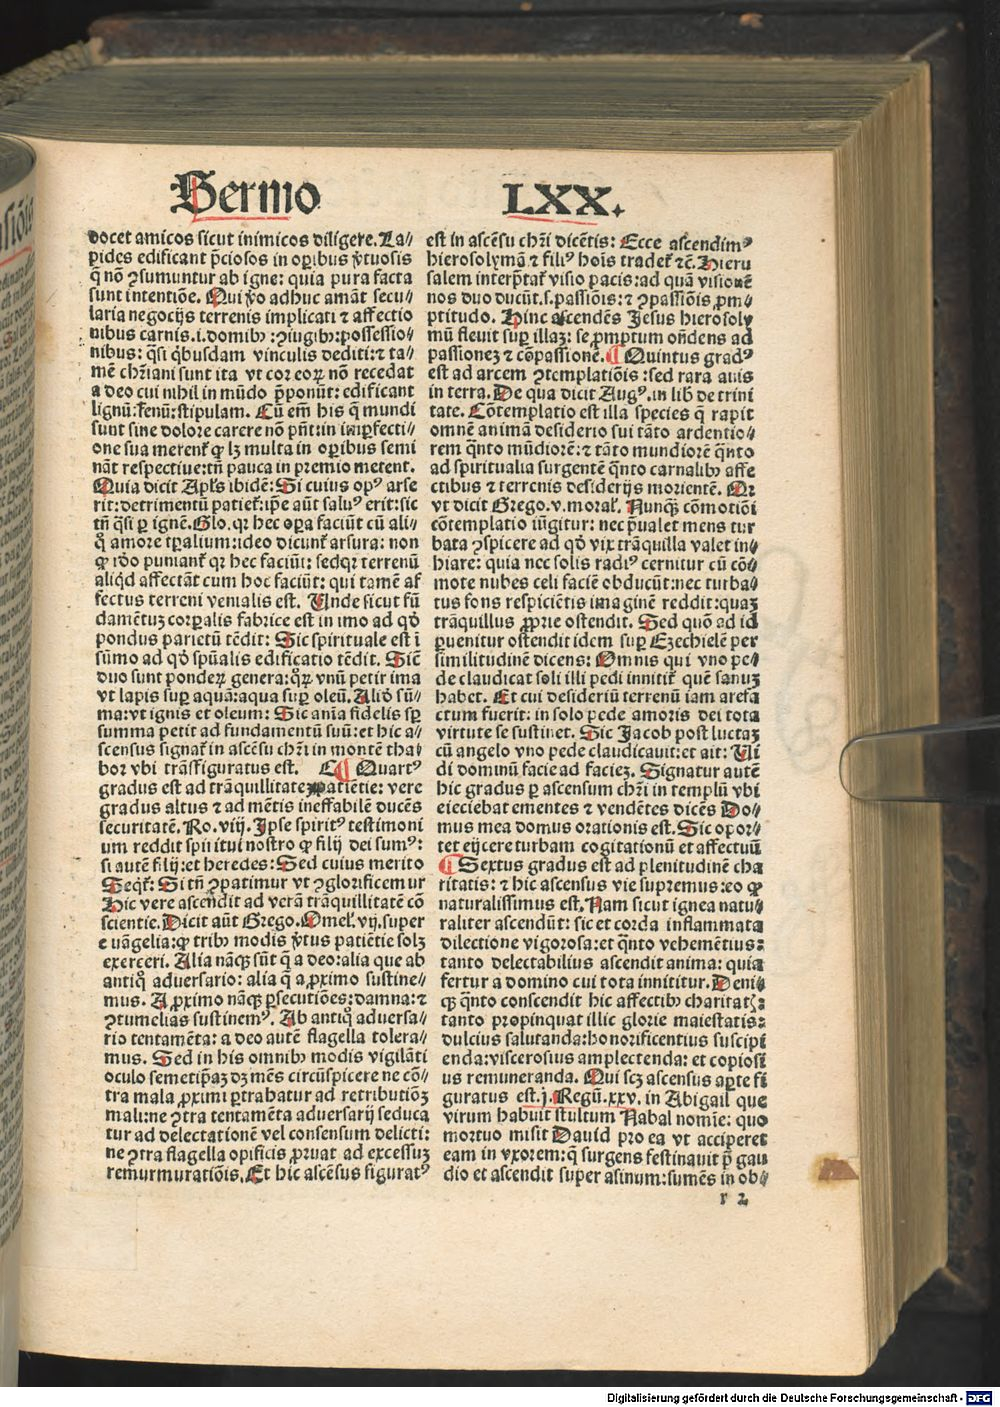 Sermo LXX.
docet amicos sicut inimicos diligere. La⸗
pides edificant p̄ciosos in oꝑibus v̓tuosis
q̄ nō ꝯsumuntur ab igne: quia pura facta
sunt intentiōe. Qui v̓o adhuc amāt secu⸗
laria negocijs terrenis implicati ⁊ affectio
nibus carnis.i.domibꝰ:ꝯiugibꝰ:possessio⸗
nibus: q̄si q̇busdam vinculis dediti:⁊ ta⸗
mē chr̄iani sunt ita vt cor eoꝝ nō recedat
a deo cui nihil in mūdo p̄ponūt: edificant
lignū:fenū:stipulam. Cū em̄ his q̄ mundi
sunt sine dolore carere nō pn̄t:in imꝑfecti⸗
one sua merent̉ ꝙ lꝫ multa in oꝑibus semi
nāt respectiue:tn̄ pauca in premio metent.
Quia dicit Apl̓s ibidē: Si cuius opꝰ arse
rit:detrimentū patiet̉:ip̄e aūt saluꝰ erit:sic
tn̄ q̄si ꝑ ignē. Glo. qr hec oꝑa faciūt cū ali⸗
q̊ amore tꝑalium:ideo dicunt̉ arsura: non
ꝙ iō puniant̉ qr hec faciūt: sed qr terrenū
aliqd affectāt cum hoc faciūt: qui tamē af
fectus terreni venialis est. Unde sicut fū
damētuꝫ corꝑalis fabrice est in imo ad qd̓
pondus parietū tēdit: Sic spirituale est ī
sūmo ad qd̓ spūalis edificatio tēdit. Siē
duo sunt ponderꝫ genera:qꝝ vnū petir ima
vt lapis suꝑ aquā:aqua suꝑ oleū. Aliđ sū⸗
ma:vt ignis et oleum: Sic anīa fidelis sꝑ
summa petit ad fundamentū suū:et hic a⸗
scensus signat̉ in ascēsu chr̄i in montē tha⸗
bor vbi trāsfiguratus est. C¶ Quartꝰ
gradus est ad trāquillitateꝫ patiētie: vere
gradus altus ⁊ ad mētis ineffabilē ducēs
securitatē. Ro. viij. Ipse spiritꝰ testimoni
um reddit spiritui nostro ꝙ filij dei sumꝰ:
si autē filij:et heredes: Sed cuius merito
Seqt̉: Si tn̄ ꝯpatimur vt ꝯglorificemur
Hic vere ascendit ad verā trāquillitatē cō
scientie. Dicit aūt Grego. Omel̓. vij. super
euāgelia:ꝙ tribꝰ modis v̓tus patiētie solꝫ
exerceri. Alia nāqꝫ sūt q̄ a deo:alia que ab
antiq̊ aduersario: alia q̄ a ꝓximo sustine⸗
mus. A ꝓximo nāqꝫ ꝑsecutiōes:damna:⁊
ꝯtumelias sustinemꝰ. Ab antiq̊ aduersa⸗
rio tentamēta: a deo autē flagella tolera⸗
mus. Sed in his omnibꝰ modis vigilāti
oculo semetiꝑaꝫ dꝫ mēs circūspicere ne cō⸗
tra mala ꝓximi ꝑtrahatur ad retributiōꝫ
mali:ne ꝯtra tentamēta aduersarij seduca
tur ad delectationē vel consensum delicti:
ne ꝯtra flagella opificis ꝓruat ad excessuꝫ
remurmuratiōis. Et hic ascēsus figuratꝰ
est in ascēsu chr̄i dicētis: Ecce ascendimꝰ
hierosolymā ⁊ filiꝰ hoīs tradet̉ ⁊c̄. Hieru
salem interp̄tat̉ visio pacis:ad quā visionē
nos duo ducūt.s.passiōis:⁊ ꝯpassiōis ꝓm⸗
ptitudo. Hinc ascendēs Jesus hierosoly
mū fleuit suꝑ illaꝫ: se ꝓmptum on̄dens ad
passioneꝫ ⁊ cōpassionē. ¶ Quintus gradꝰ
est ad arcem ꝯtemplatiōis :sed rara auis
in terra. De qua dicit Augꝰ. in lib̓ de trini
tate. Cōtemplatio est illa species q̄ rapit
omnē animā desiderio sui tāto ardentio⸗
rem q̄nto mūdiorē:⁊ tāto mundiorē q̄nto
ad spiritualia surgentē q̄nto carnalibꝰ affe
ctibus ⁊ terrenis desiderijs morientē. Qr
vt dicit Grego. v. moral̓. Nunqꝫ cōmotiōi
cōtemplatio iūgitur: nec p̄ualet mens tur
bata ꝯspicere ad qd̓ vix trāquilla valet in⸗
hiare: quia nec solis radiꝰ cernitur cū cō⸗
mote nubes celi faciē obducūt:nec turba⸗
tus fons respiciētis imaginē reddit:quaꝫ
trāquillus ꝓprie ostendit. Sed quō ad id
ꝑuenitur ostendit idem suꝑ Ezechielē per
similitudinē dicens: Omnis qui vno pe⸗
de claudicat soli illi pedi innitit̉ quē sanuꝫ
habet. Et cui desideriū terrenū iam arefa
ctum fuerit: in solo pede amoris dei tota
virtute se sustinet. Sic Jacob post luctaꝫ
cū angelo vno pede claudicauit:et ait: Ui
di dominū facie ad facieꝫ. Signatur autē
hic gradus ꝑ ascensum chr̄i in templū vbi
eieciebat ementes ⁊ vendētes dicēs Do⸗
mus mea domus orationis est. Sic opor⸗
tet eijcere turbam cogitationū et affectuū
¶ Sextus gradus est ad plenitudinē cha
ritatis: ⁊ hic ascensus vie supremus:eo ꝙ
naturalissimus est. Nam sicut ignea natu⸗
raliter ascendūt: sic et corda inflammata
dilectione vigorosa:et q̄nto vehemētius:
tanto delectabilius ascendit anima: quia
fertur a domino cui tota innititur. Deni⸗
qꝫ q̄nto conscendit hic affectibꝰ charitatꝭ:
tanto propinquat illic glorie maiestatis:
dulcius salutanda:honorificentius suscipi
enda:viscerosius amplectenda: et copiosi
us remuneranda. Qui scꝫ ascensus aꝑte fi
guratus est.j. Regū.xxv. in Abigail que
virum habuit stultum Nabal nomīe: quo
mortuo misit Dauid pro ea vt acciperet
eam in vxorem:q̄ surgens festinauit p̄ gau
dio et ascendit super asinum:sumēs in ob⸗
r 2
Digitalisierung gefördert durch die Deutsche Forschungsgemeinschaft - DFG